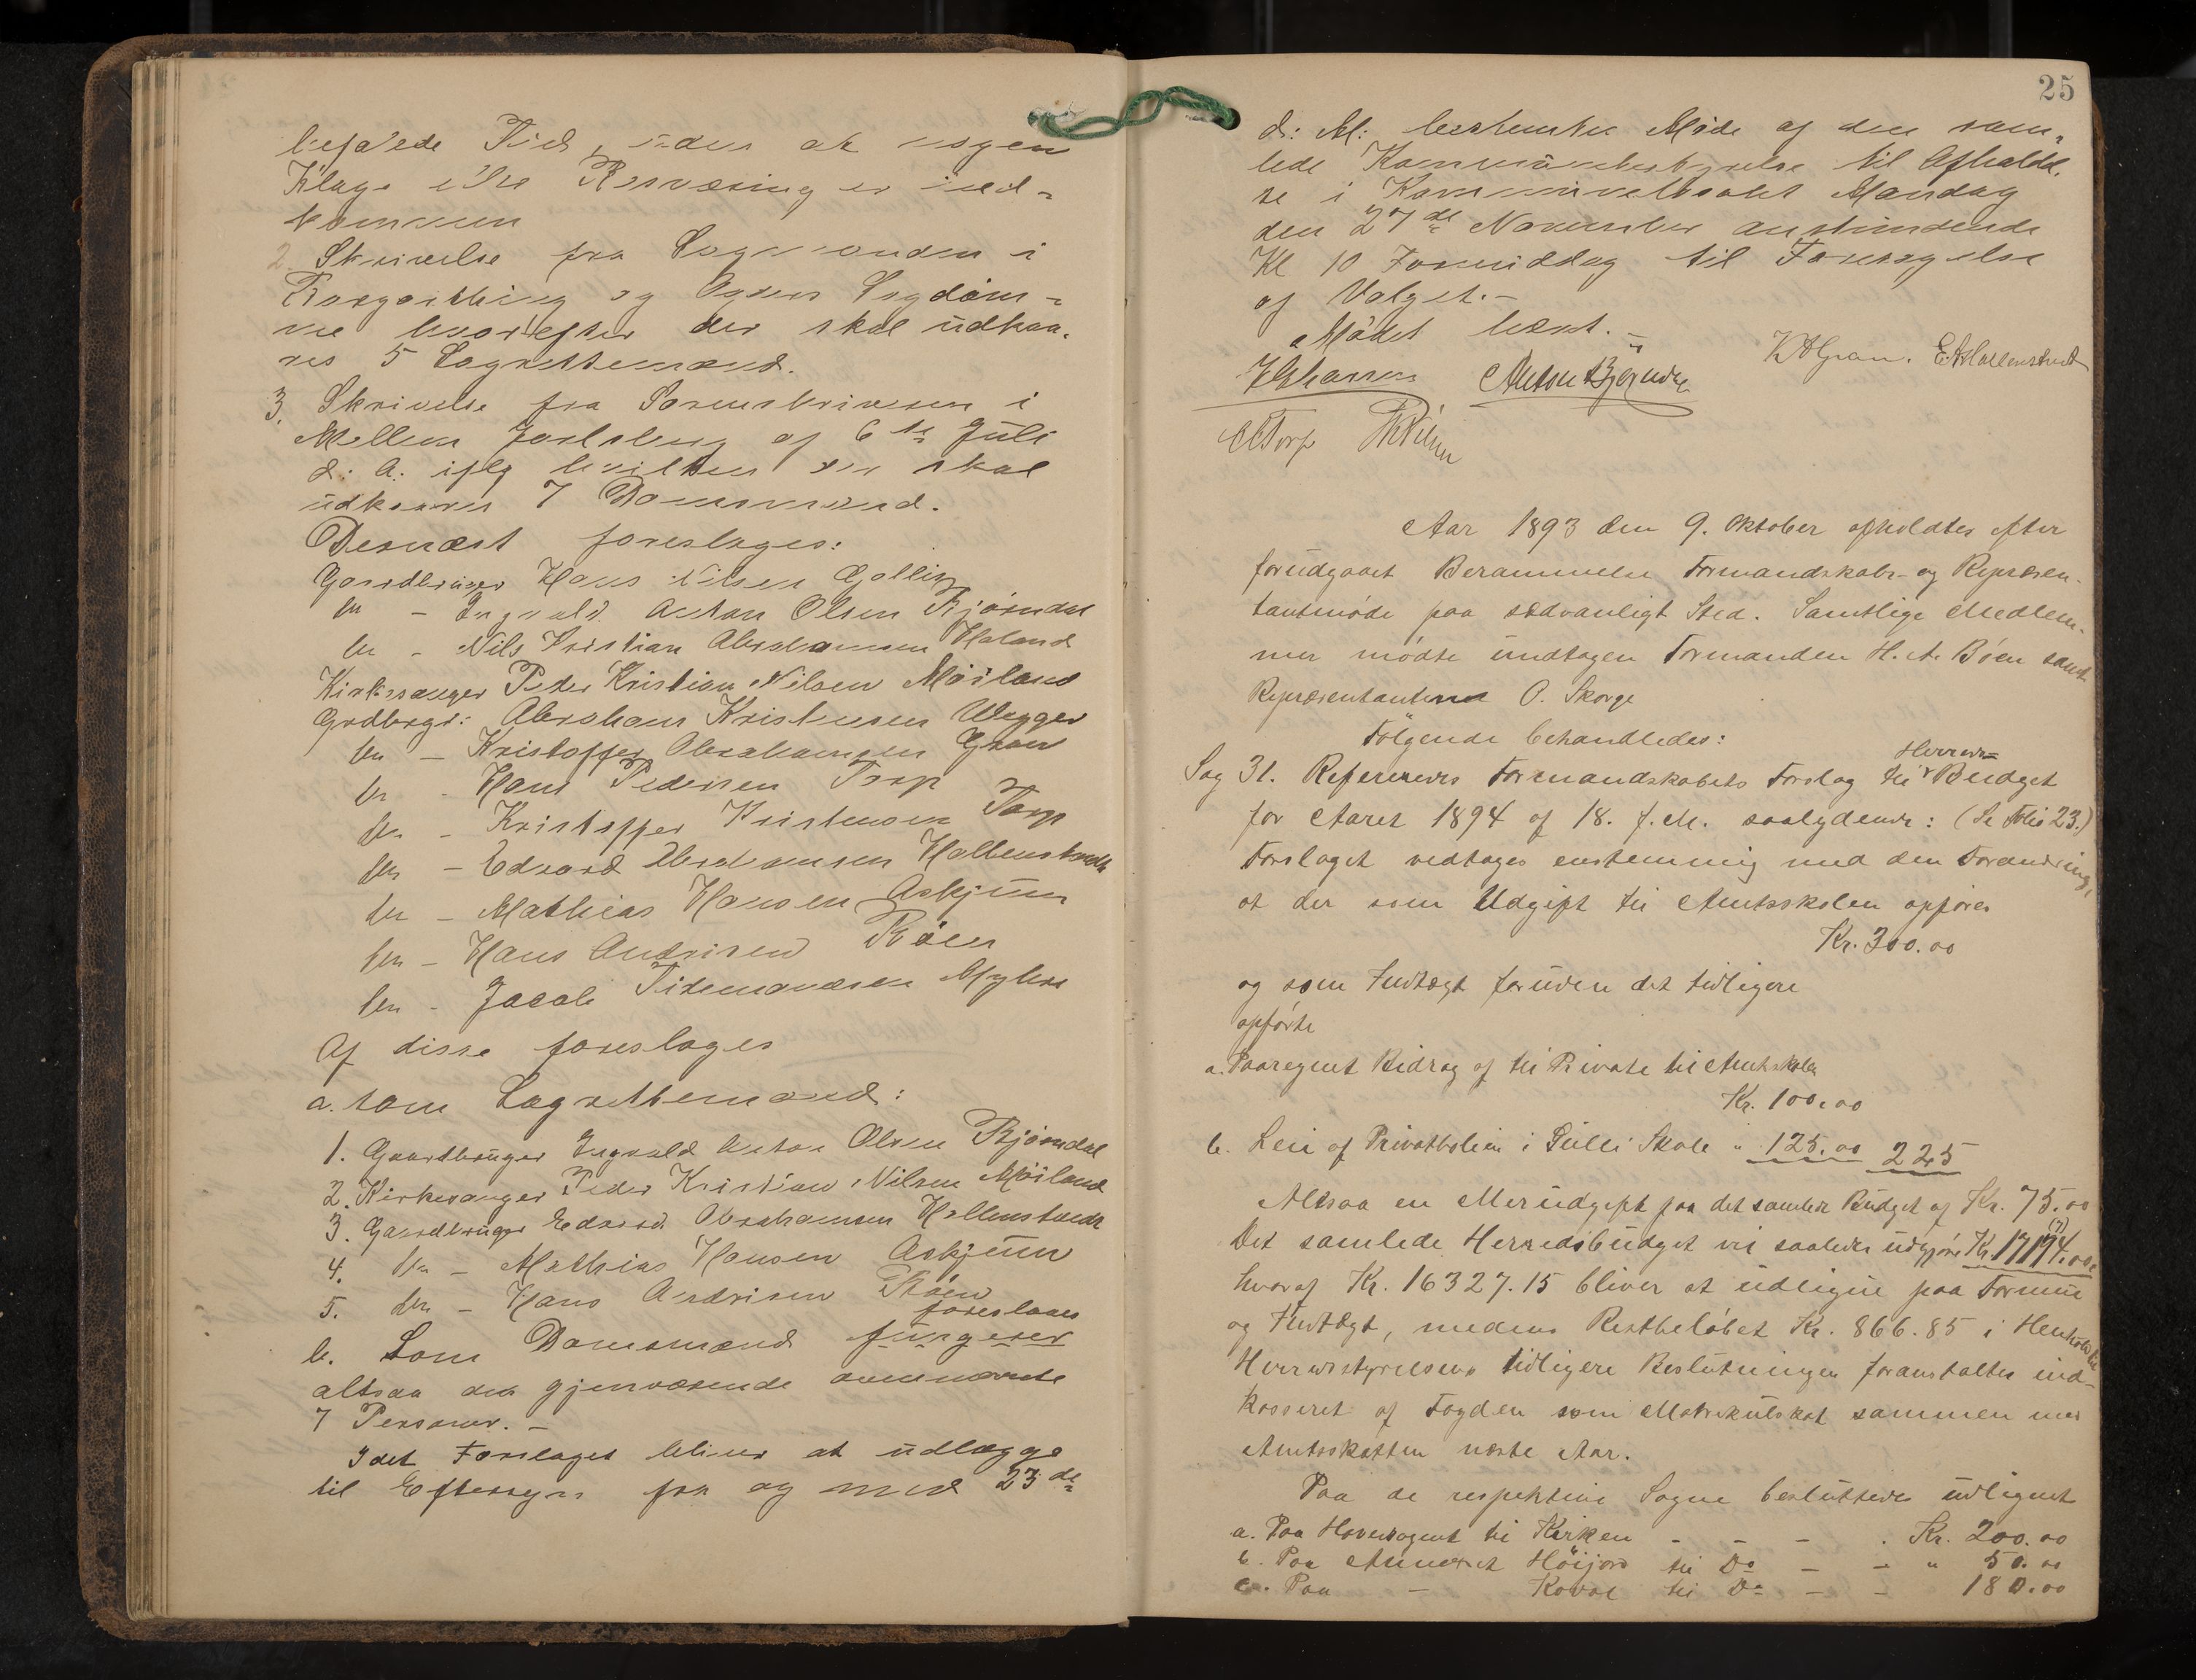 befalede Tid, uden at nogen
Klage eller Besværing er ind-
kommen
2. Skrivelse fra Lagmanden i
Borgarthing og Agders Lagdøm-
me hvorefter der skal udkaa-
res 5 Lagrettemænd.
3. Skrivelse fra Sorenskriveren i
Mellem Jarlsberg af 6te Juli
d: A: iflg hvilken der skal
udkaares 7 Domsmænd.
Dernæst foreslages:
Gaardbruger Hans Nilsen Gallis
do - Ingvald Anton Olsen Bjørndal
do - Nils Kristian Abrahamsen Haland
Kirkesanger Peder Kristian Nilsen Møiland
Grdbrgr: Abraham Kristensen Wegger
do - Kristoffer Abrahamsen Gran
do - Hans Pedersen Torp
do - Kristoffer Kristensen Torp
do - Edvard Abrahamsen Hallenstvedt
do - Mathias Hansen Askjum
do - Hans Andrisen Bøen
do - Jacob Tidemandsen Myhre
Af disse foreslages
a. som Lagrettemænd:
1. Gaardbruger Ingvald Anton Olsen Bjørndal
2. Kirkesanger Peder Kristian Nilsen Møiland
3. Gaardbruger Edvard Abrahamsen Hallenstvedt
4. do - Mathias Hansen Askjum
5. do - Hans Andrisen Bøen
foreslaaes
b. Som Domsmænd fungerer
altsaa de gjenværende ovennævnte
7 Personer. -
Idet Forslaget bliver at udlægge
til Eftersyn fra og med 23de
25
d: M: bestemtes Møde af den sam-
lede Kommunebestyrelse til Afholdel-
se i Kommunelokalet Mandag
den 27de November anstundende
Kl 10 Formiddag til Foretagelse
af Valget.-
Mødet hævet. -
K A Gran. E. A. Hallenstvedt
Anton Bjørndal
Torp
Aar 1893 den 9. Oktober afholdtes efter
forudgaaet Berammelse Formandskabs- og Repræsen-
tantmøde paa sædvanligt Sted. Samtlige Medlem-
mer mødte undtagen Formanden H. A. Bøen samt
Repræsentanterne O. Skorge
Følgende behandledes:
Herreds-
Sag 31. Refereredes Formandskabets Forslag til Budget
for Aaret 1894 af 18. f. M. saalydende: (Se Folio 23.)
Forslaget vedtages enstemmig med den Forandring,
at der som Udgift til Amtsskolen opføres
Kr. 300.00
og som Indtægt foruden det tidligere
opførte
a. Paaregnet Bidrag af til Private til Amtsskolen
Kr. 100.00
b. Leie af Privatbolien i Gulli Skole " 125.00 225
Altsaa en Merudgift paa det samlede Budget af Kr. 75.00
Det samlede Herredsbudget vil saaledes udgjøre Kr. 17194.00,
hvoraf Kr. 16327.15 bliver at udligne paa Formue
og Indtægt, medens Restbeløbet Kr. 866.85 i Henhold til
Herredsstyrelsens tidligere Beslutninger foranstaltes ind-
kasseret af Fogden som Matrikulskat sammen med
Amtsskatten næste Aar.
Paa de respektive Sogne besluttedes udlignet
a. Paa Hovedsognet til Kirken - - - . Kr. 200.00
b. Paa Annexet Høijord til Do - - " 50.00
c. Paa - Kodal til Do - - 180.00